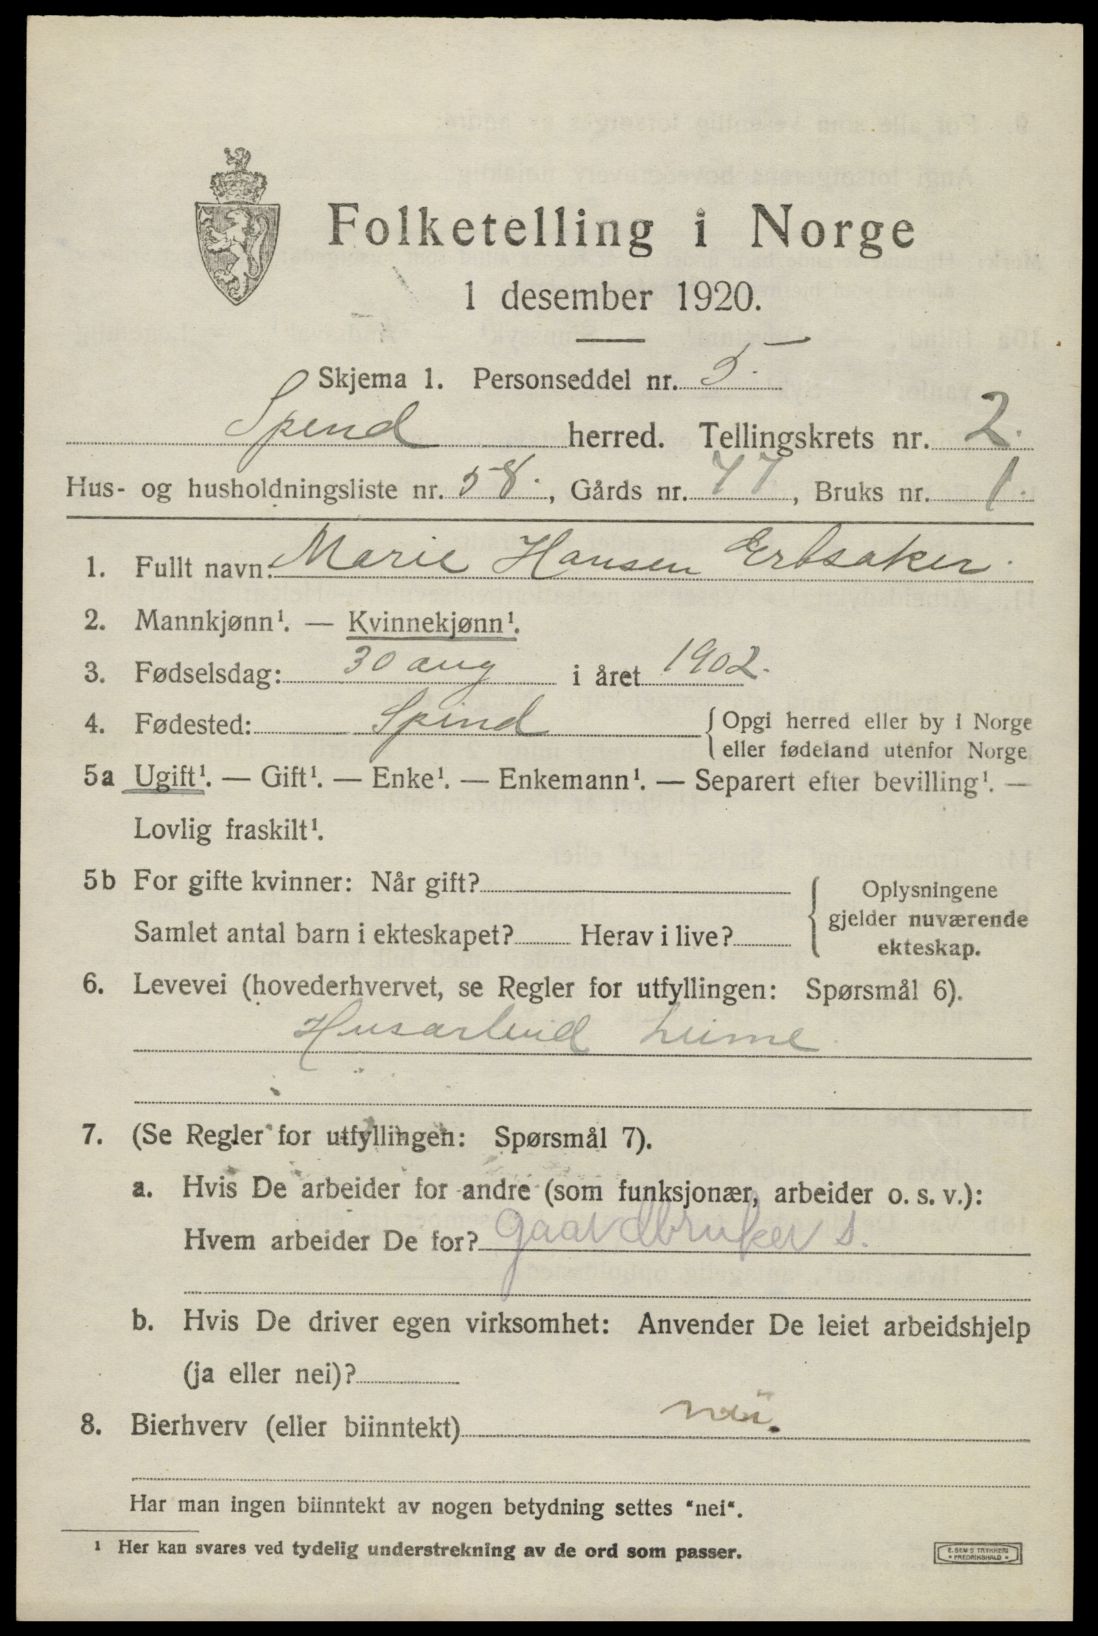 Folketelling i Norge
1 desember 1920.
Skjema 1. Personseddel nr. 5.
Spind herred. Tellingskrets nr. 2.
Hus- og husholdningsliste nr. 58., Gårds nr. 77, Bruks nr. 1.
1. Fullt navn: Marie Hansen Ertsaker.
2. Mannkjønn¹. — Kvinnekjønn¹.
3. Fødselsdag: 30 aug i året 1902.
4. Fødested: Spind {Opgi herred eller by i Norge
eller fødeland utenfor Norge
5a Ugift¹. — Gift¹. — Enke¹. — Enkemann¹. — Separert efter bevilling¹. —
Lovlig fraskilt¹.
5b For gifte kvinner: Når gift?
Samlet antal barn i ekteskapet? Herav i live?
{Oplysningene
gjelder nuværende
ekteskap.
6. Levevei (hovederhvervet, se Regler for utfyllingen: Spørsmål 6).
Husarbeid heime
7. (Se Regler for utfyllingen: Spørsmål 7).
a. Hvis De arbeider for andre (som funksjonær, arbeider o. s. v.):
Hvem arbeider De for? gaardbruker s.
b. Hvis De driver egen virksomhet: Anvender De leiet arbeidshjelp
(ja eller nei)?
8. Bierhverv (eller biinntekt) nei.
Har man ingen biinntekt av nogen betydning settes "nei".
1 Her kan svares ved tydelig understrekning av de ord som passer.
E. SEM'S TRYKKERI
• FREDRIKSHALD •